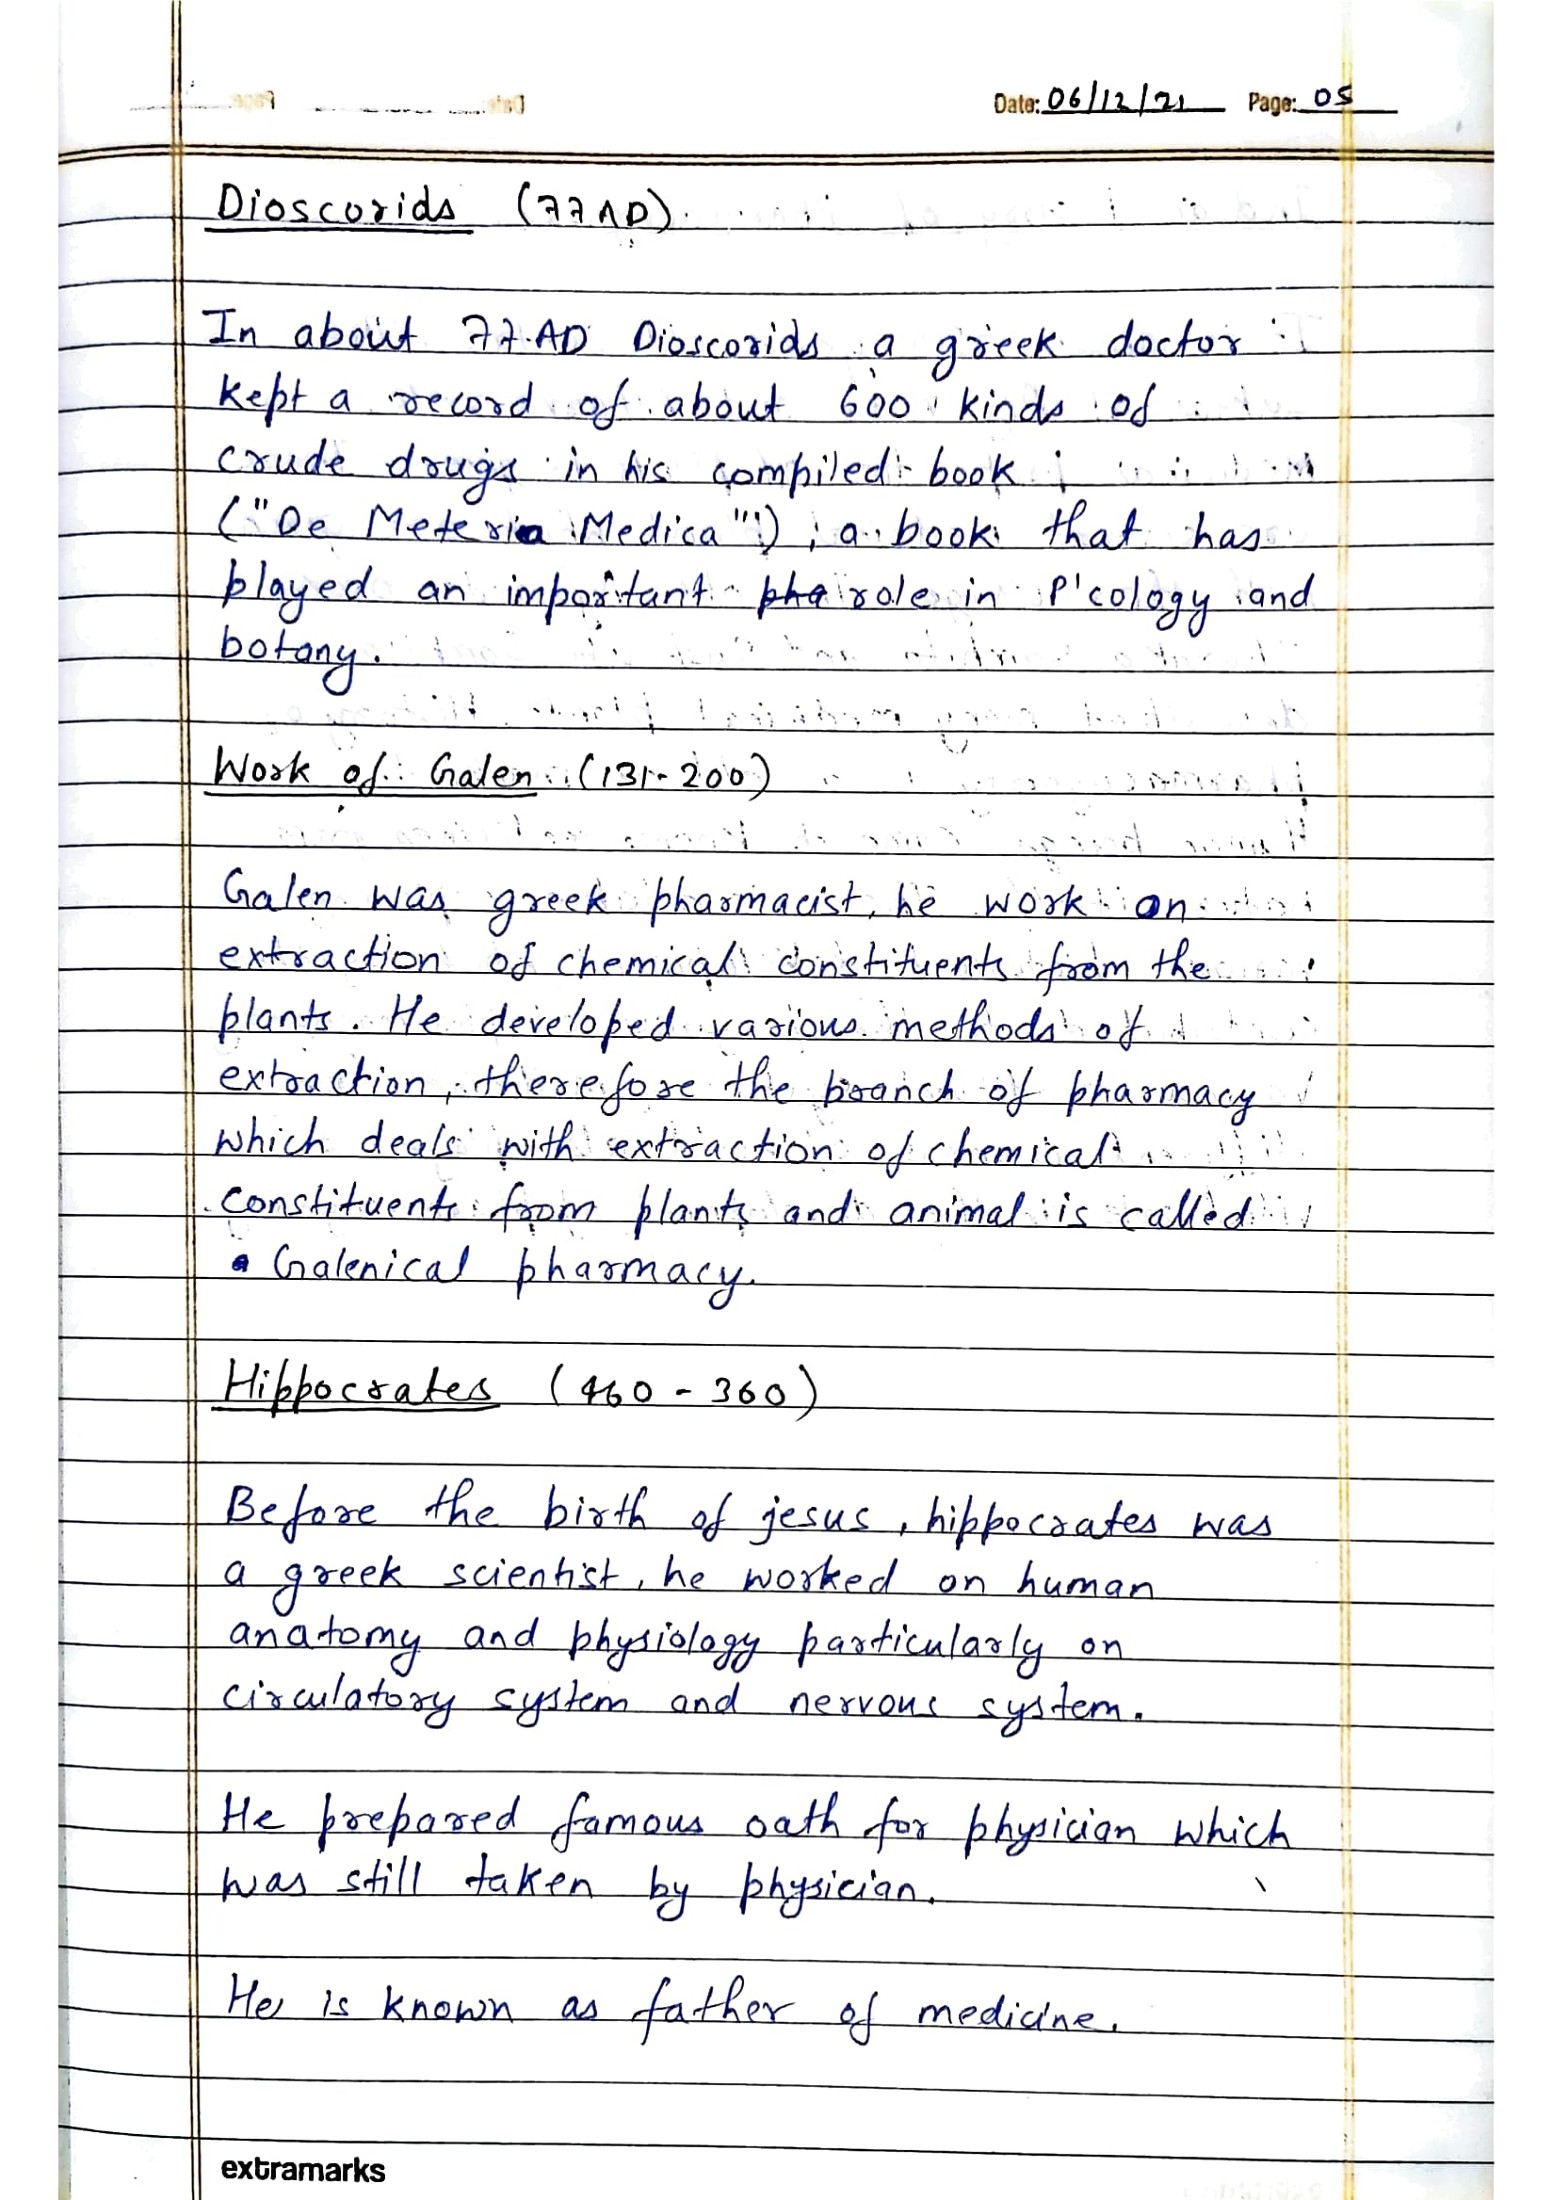 Date: 06/12/21 Page: 05
Dioscorids (77AD).
In about 77 AD Dioscorids a greek doctor
kept a record of about 600 kinds of
crude drugs in his compiled book
("De Meteria Medica"), a book that has
played an important pha role in P'cology and
botany.
Work of Galen (131-200)
Galen was greek pharmacist, he work on
extraction of chemical constituents from the
plants. He developed various methods of
extraction, therefore the branch of pharmacy
which deals with extraction of chemical
constituents from plants and animal is called
Galenical pharmacy.
Hippocrates (460 - 360)
Before the birth of jesus, hippocrates was
a greek scientist, he worked on human
anatomy and physiology particularly on
circulatory system and nervous system.
He prepared famous oath for physician which
was still taken by physician.
He is known as father of medicine.
extramarks